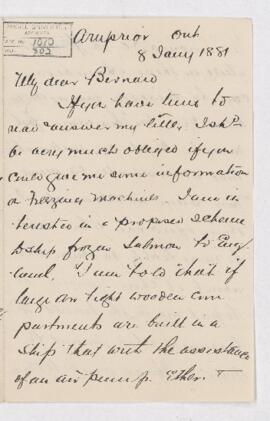 McGILL UNIVERSITY
ARCHIVES
ACC. NO. 1010
REF. 302
Arnprior Ont
8 Jany 1881
My dear Bernard
If you have time to
read & answer my letter I shd
be very much obliged if you
could give me some information
on freezing machines. I am in-
terested in a proposed scheme
to ship frozen Salmon to Eng-
land, I am told that if
large air tight wooden com
partments are built in a
ship that with the assistance
of an air pump. Ether.